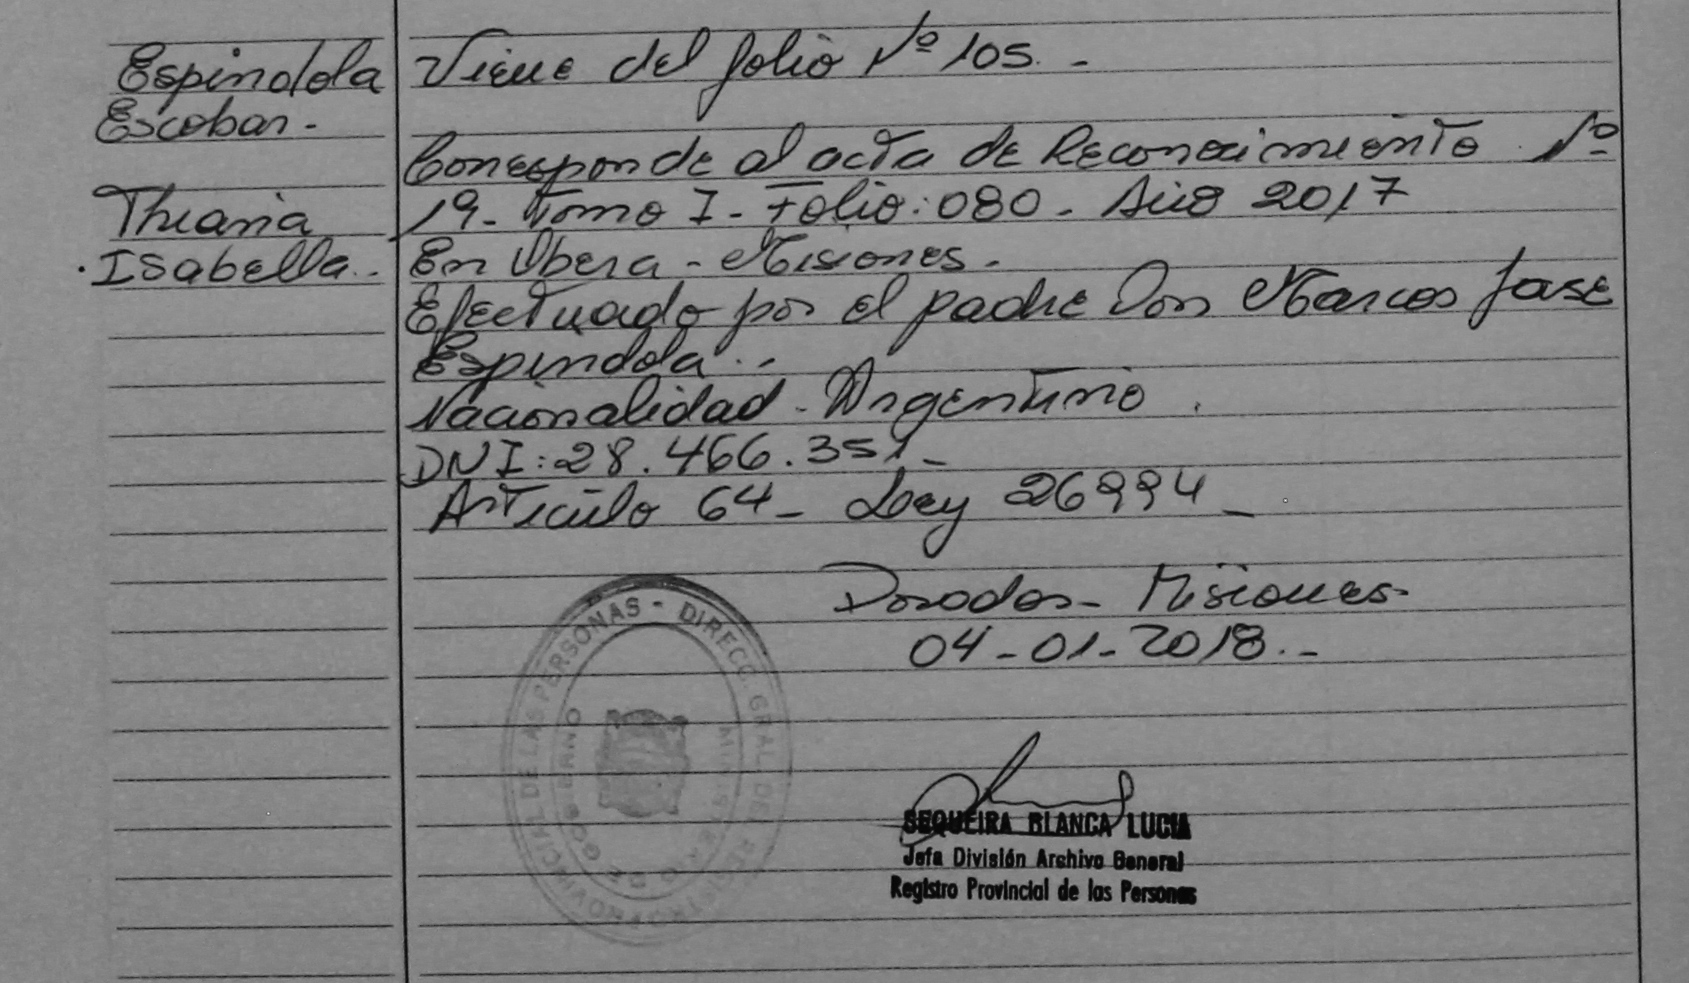 Espindola
Escobar.-
Thiana
Isabella.-
Viene del folio Nº 105.-
Corresponde al acta de Reconocimiento Nº
19- Tomo I- Folio: 080- Año 2017
En Obera - Misiones.
Efectuado por el padre Don Marcos José
Espindola.-
Nacionalidad - Argentino.
DNI: 28.466.351-
Articulo 64- Ley 26994-
Posadas- Misiones-
04-01-2018.-
DIRECC. GRAL. DEL REGISTRO PROVINCIAL DE LAS PERSONAS -
MINISTERIO DE GOBIERNO
SEQUEIRA BLANCA LUCIA
Jefa División Archivo General
Registro Provincial de las Personas